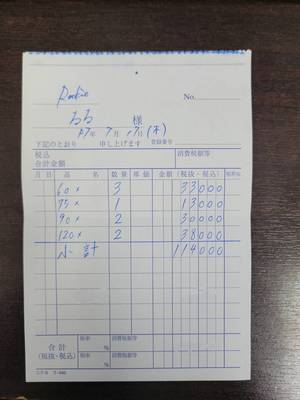 Rookie
No.
るる 様
R7年 7月 17日(木)
下記のとおり 申し上げます 登録番号
税込合計金額 消費税額等
月 日 品名 数量 単価 金額(税抜・税込) 税率%
60× 3 33000
75× 1 13000
90× 2 30000
120× 2 38000
小計 114000
合計(税抜・税込) 税率 % 消費税額等
税率 % 消費税額等